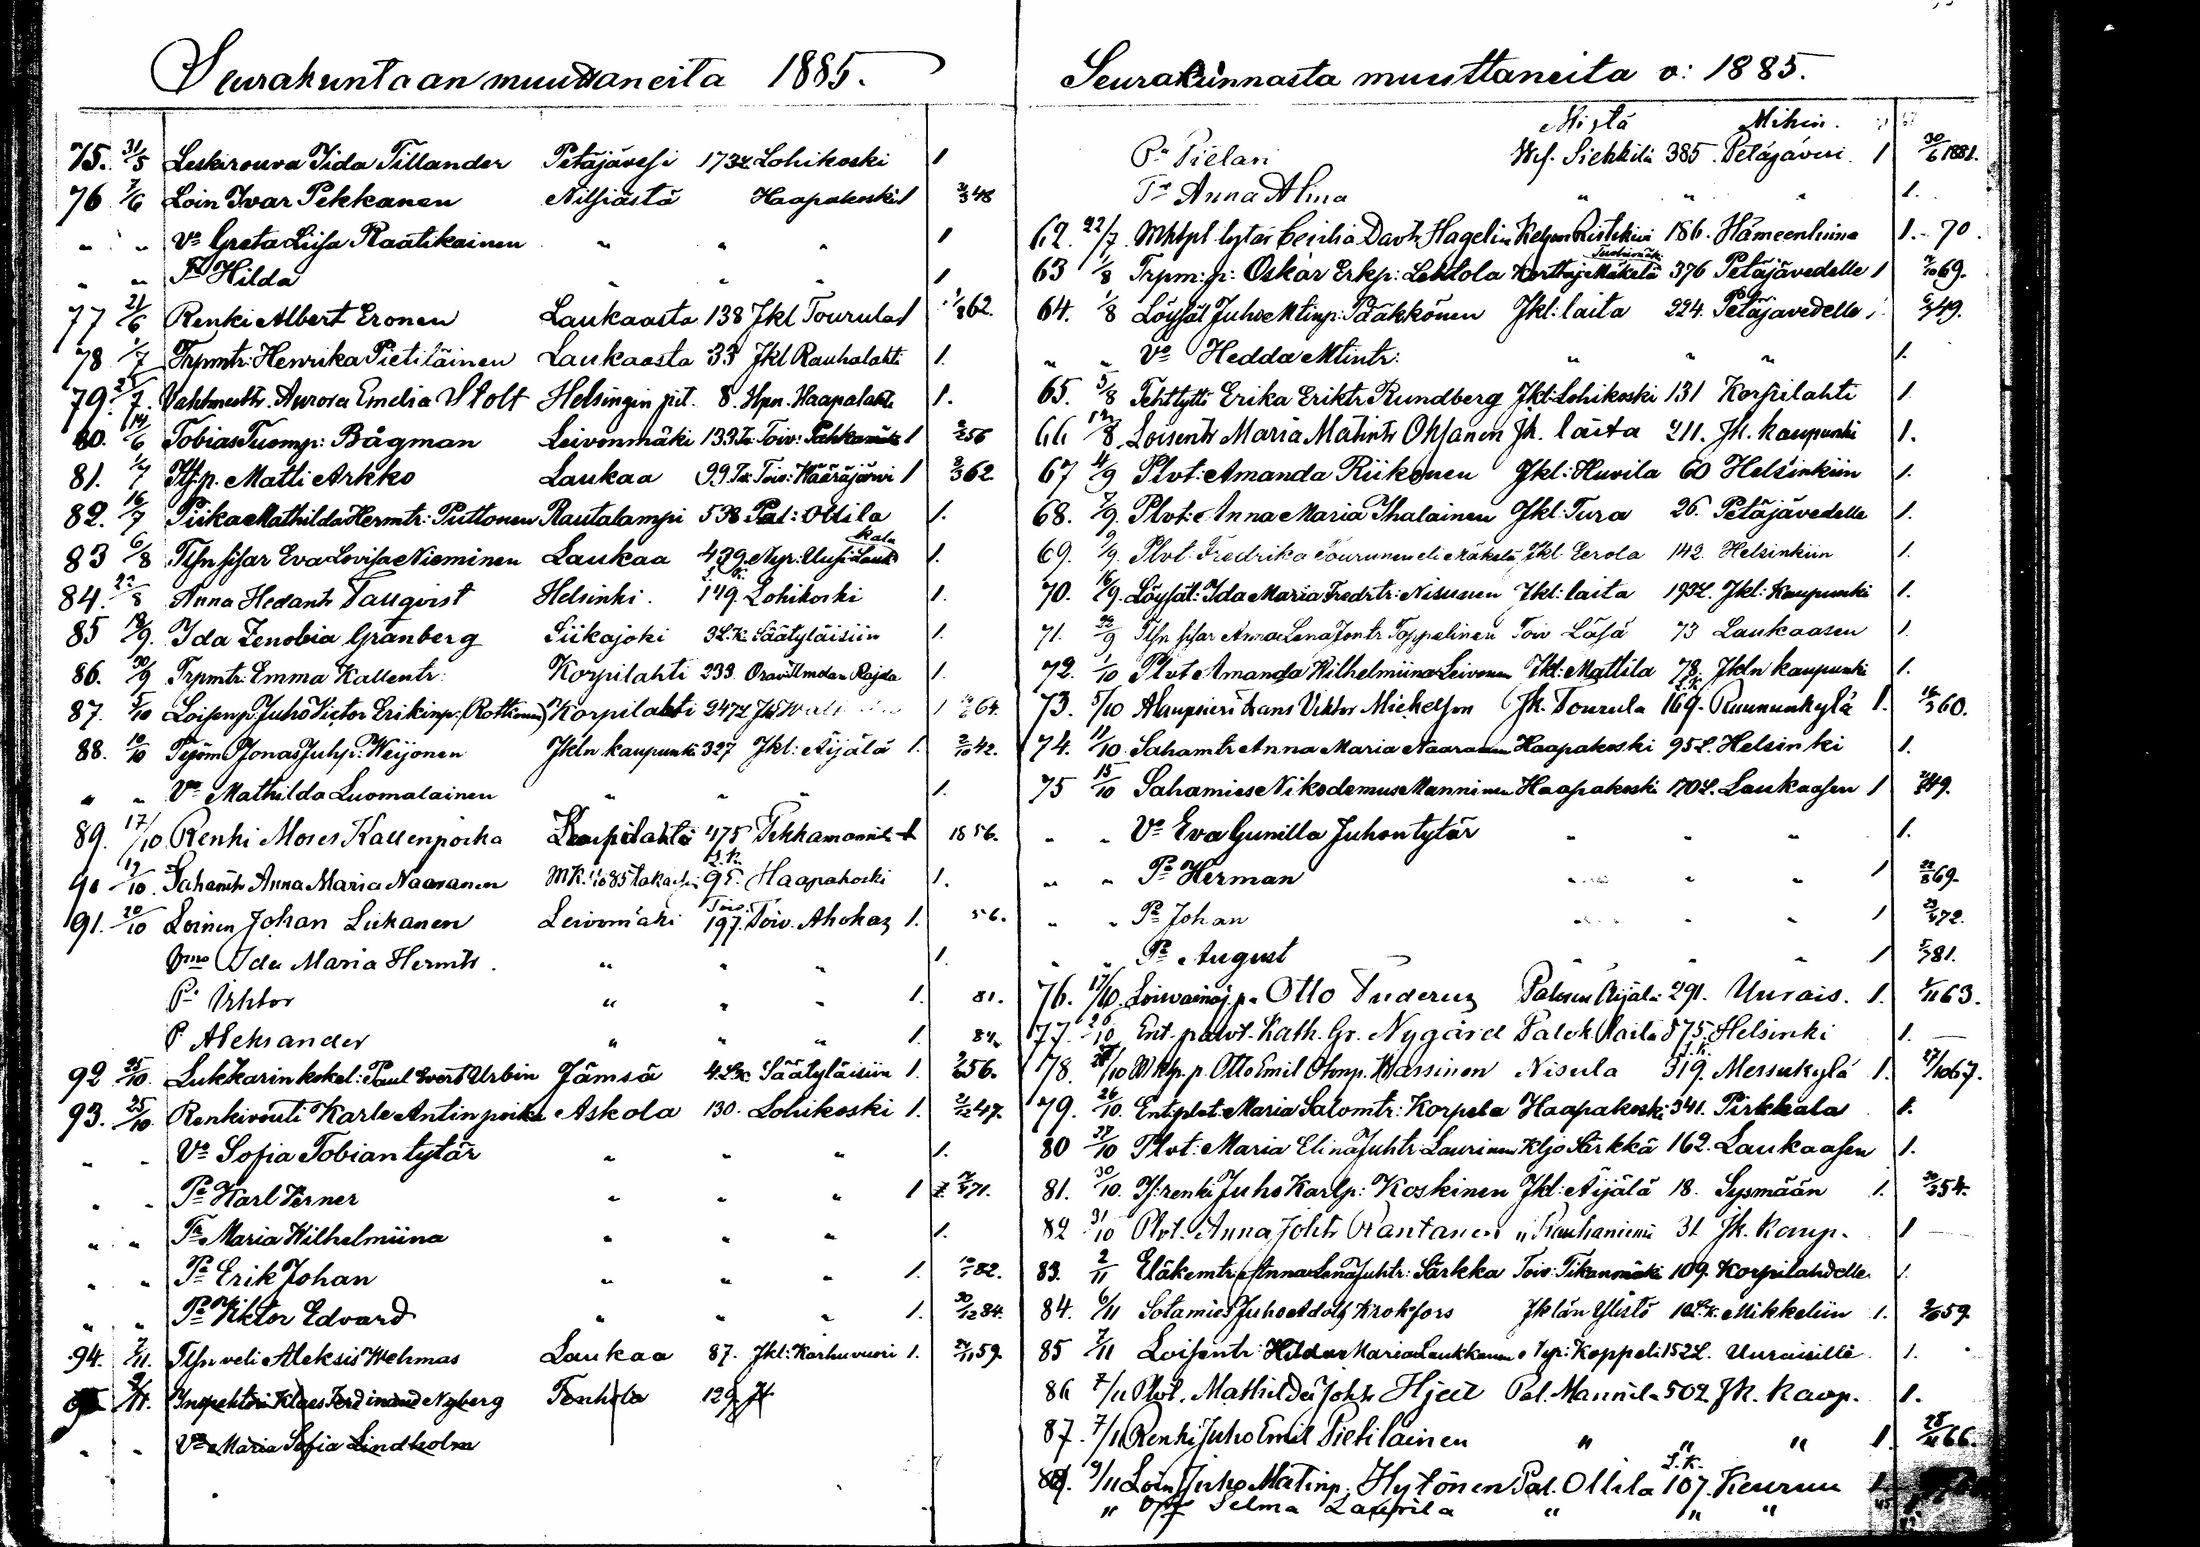 Seurakuntaan muuttaneita 1885.
75. 31/5 Leskirouva Iida Tillander Petäjävesi 173L Lohikoski 1
76 7/6 Loin Ivar Pekkanen Nilsiästä Haapakoski 1 48
" " Vo Greta Liisa Raatikainen " " " 1
" " Tr Hilda " " " 1
77 21/6 Renki Albert Eronen Laukaasta 138 Jkl Tourula 1 62.
78 1/7 Trpmtr: Henrika Pietiläinen Laukaasta 33 Jkl Rauhalahti 1.
79. 7. Aurora Emelia Stolt Helsingin pit. 8. Haapalahti 1.
80. 14/6 Tobias Tuomp: Bågman Leivonmäki 133 Toiv: 1 56
81. Matti Arkko Laukaa 99. Toiv: Määräjärvi 1 62.
82. 16/7 Piika Mathilda Hermtr: Puttonen Rautalampi 538 Pal: Ollila 1.
83 6/8 Tlsn sisar Eva Lovisa Nieminen Laukaa 439. Nyr. 1.
84. 22/8 Anna Hedantr Tallqvist Helsinki. 149. Lohikoski 1.
85 /9. Ida Zenobia Granberg Siikajoki 3 L.K. Säätyläisiin 1.
86. 30/9 Trpmtr: Emma Kallentr: Korpilahti 233. 1.
87. 5/10 Loisenp: Juho Victor Erikinp: Korpilahti 247L 1 64.
88. 10/10 Jonas Juhp: Weijonen Jkln kaupunki 327 Jkl: Äijälä 1. 2/10 42.
" " Vo Mathilda Luomalainen " " " 1.
89. 17/10 Renki Moses Kallenpoika Korpilahti 475 1856.
90 19/10. Sahamtr Anna Maria Naaranen 95. L.K. Haapakoski 1.
91. 20/10 Loinen Johan Liikanen Leivomäki 197. Toiv. Ahokas 1. 56.
Vmo Ida Maria Hermtr. " " " 1.
P: Viktor " " " 1. 81.
P Aleksander " " " 1. 84.
92 25/10. Lukkarin kokel: Paul Evert Urbin Jämsä 4. L.K. Säätyläisiin 1. 56.
93. 25/10. Renkivouti Karle Antinpoika Askola 130. Lohikoski 1. 47.
" " Vo Sofia Tobiantytär " " " 1.
" " Pa Karl Verner " " " 1 71.
" " Tr Maria Wilhelmiina " " " 1.
" " Pa Erik Johan " " " 1. 82.
" " Pa Viktor Edvard " " " 1. 30/12 84.
94. 7/11. Tlsn veli Aleksis Wehmas Laukaa 87. Jkl: Karhuvuori 1. 59.
Inspehtori Klaes Ferdinand Nyberg Tenhola 129 Jk
" " Vo Maria Sofia Lindholm
Seurakunnasta muuttaneita v: 1885.
Mistä Mihin.
Pa Pielari 385. Petäjävesi. 1 30/6 1881.
Tr Anna Alma " " " 1.
62. 22/7. Cecilia Davtr Hagelin Keljon Ristikivi 186. Hämeenlinna 1. 70.
63 1/8 Trpm: p: Oskar Erkp: Lehtola Mäkelä 376 Petäjävedelle 1 69.
64. 1/8 Löysäl Juho Mtinp: Pääkkönen Jkl: laita 224. Petäjävedelle 1 49.
" " Vo Hedda Mtintr: " " " 1.
65. 5/8 Tehttytti Erika Eriktr Rundberg Jkl: Lohikoski 131 Korpilahti 1
66 12/8. Loisentr Maria Matintr Ohsanen Jk. laita 211. Jk. kaupunki 1.
67 4/9 Plvt: Amanda Riikonen Jkl: Huvila 60 Helsinkiin 1.
68. 7/9. Plvt: Anna Maria Ihalainen Jkl: Tura 26. Petäjävedelle 1.
69. 9/9. Plvt: Fredrika Tourunen eli Mäkelä Jkl Eerola 142. Helsinkiin 1.
70. 16/9. Löysäl: Ida Maria Fredrtr: Nisunen Jkl: laita 193L. Jkl: Kaupunki 1.
71. 22/9 Tlsn sisar Anna Lena Jontr Toppelinen Toiv Läsä 73 Laukaasen 1.
72. 1/10 Plvt Amanda Wilhelmiina Leivonen Jkl: Mattila 78. Jkln kaupunki 1.
73. 5/10 Alaupsieri Frans Viktor Michelson Jk. Tourula 169. L.K. Ruununkylä 1. 60.
74. 11/10. Sahamtr Anna Maria Naaranen Haapakoski 95L. Helsinki 1.
75 15/10 Sahamies Nikodemus Manninen Haapakoski 170L. Laukaasen 1 49.
" " Vo Eva Gunilla Juhontytär " " " 1.
" " Pa Herman " " " 1 22/8 69.
" " Pa Johan " " " 1 72.
" " Pa August " " " 1 81.
76. 17/10. Otto Tuderus Palosen Äijälä 291. Uurais. 1. 63.
77. /10 Ent. palvt. Kath. Gr. Nygård Palok laita 575. Helsinki 1. —
78. /10 Otto Emil Otonp. Wassinen Nisula 319. L.K. Messukylä 1. 27/10 67.
79. 26/10. Ent: plvt: Maria Salomtr: Korpela Haapakoski 341. Pirkkala 1.
80 27/10 Plvt: Maria Elina Juhtr: Laurinen Kljo Särkkä 162. Laukaasen 1.
81. 30/10. Is: renki Juho Karlp: Koskinen Jkl: Äijälä 18. Sysmään 1. 54.
82 31/10 Plvt. Anna Johtr Rantanen " Rauhaniemi 31 Jk. Kaup. 1
83. 2/11 Eläkemtr: Anna Lena Juhtr: Särkka Toiv: Tikanmäki 109. Korpilahdelle. 1.
84. 6/11 Sotamies Juho Adolf Krokfors Jk län Ylistö 10 L.K. Mikkeliin 1. 59.
85 7/11 Loisentr: Hilda Maria Laukkanen Nyr: Keppeli 152L. Uuraisille 1.
86 7/11 Plvt. Mathilda Johtr Hjelt Pal. Mannila 502. Jk. Kaup. 1.
87. 7/11 Renki Juho Emil Pietiläinen " " " 1. 66.
88. 9/11 Loin Juho Matinp. Hytönen Pal. Ollila 107. L.K. Keuruu 1.
" Selma Laurila " " "